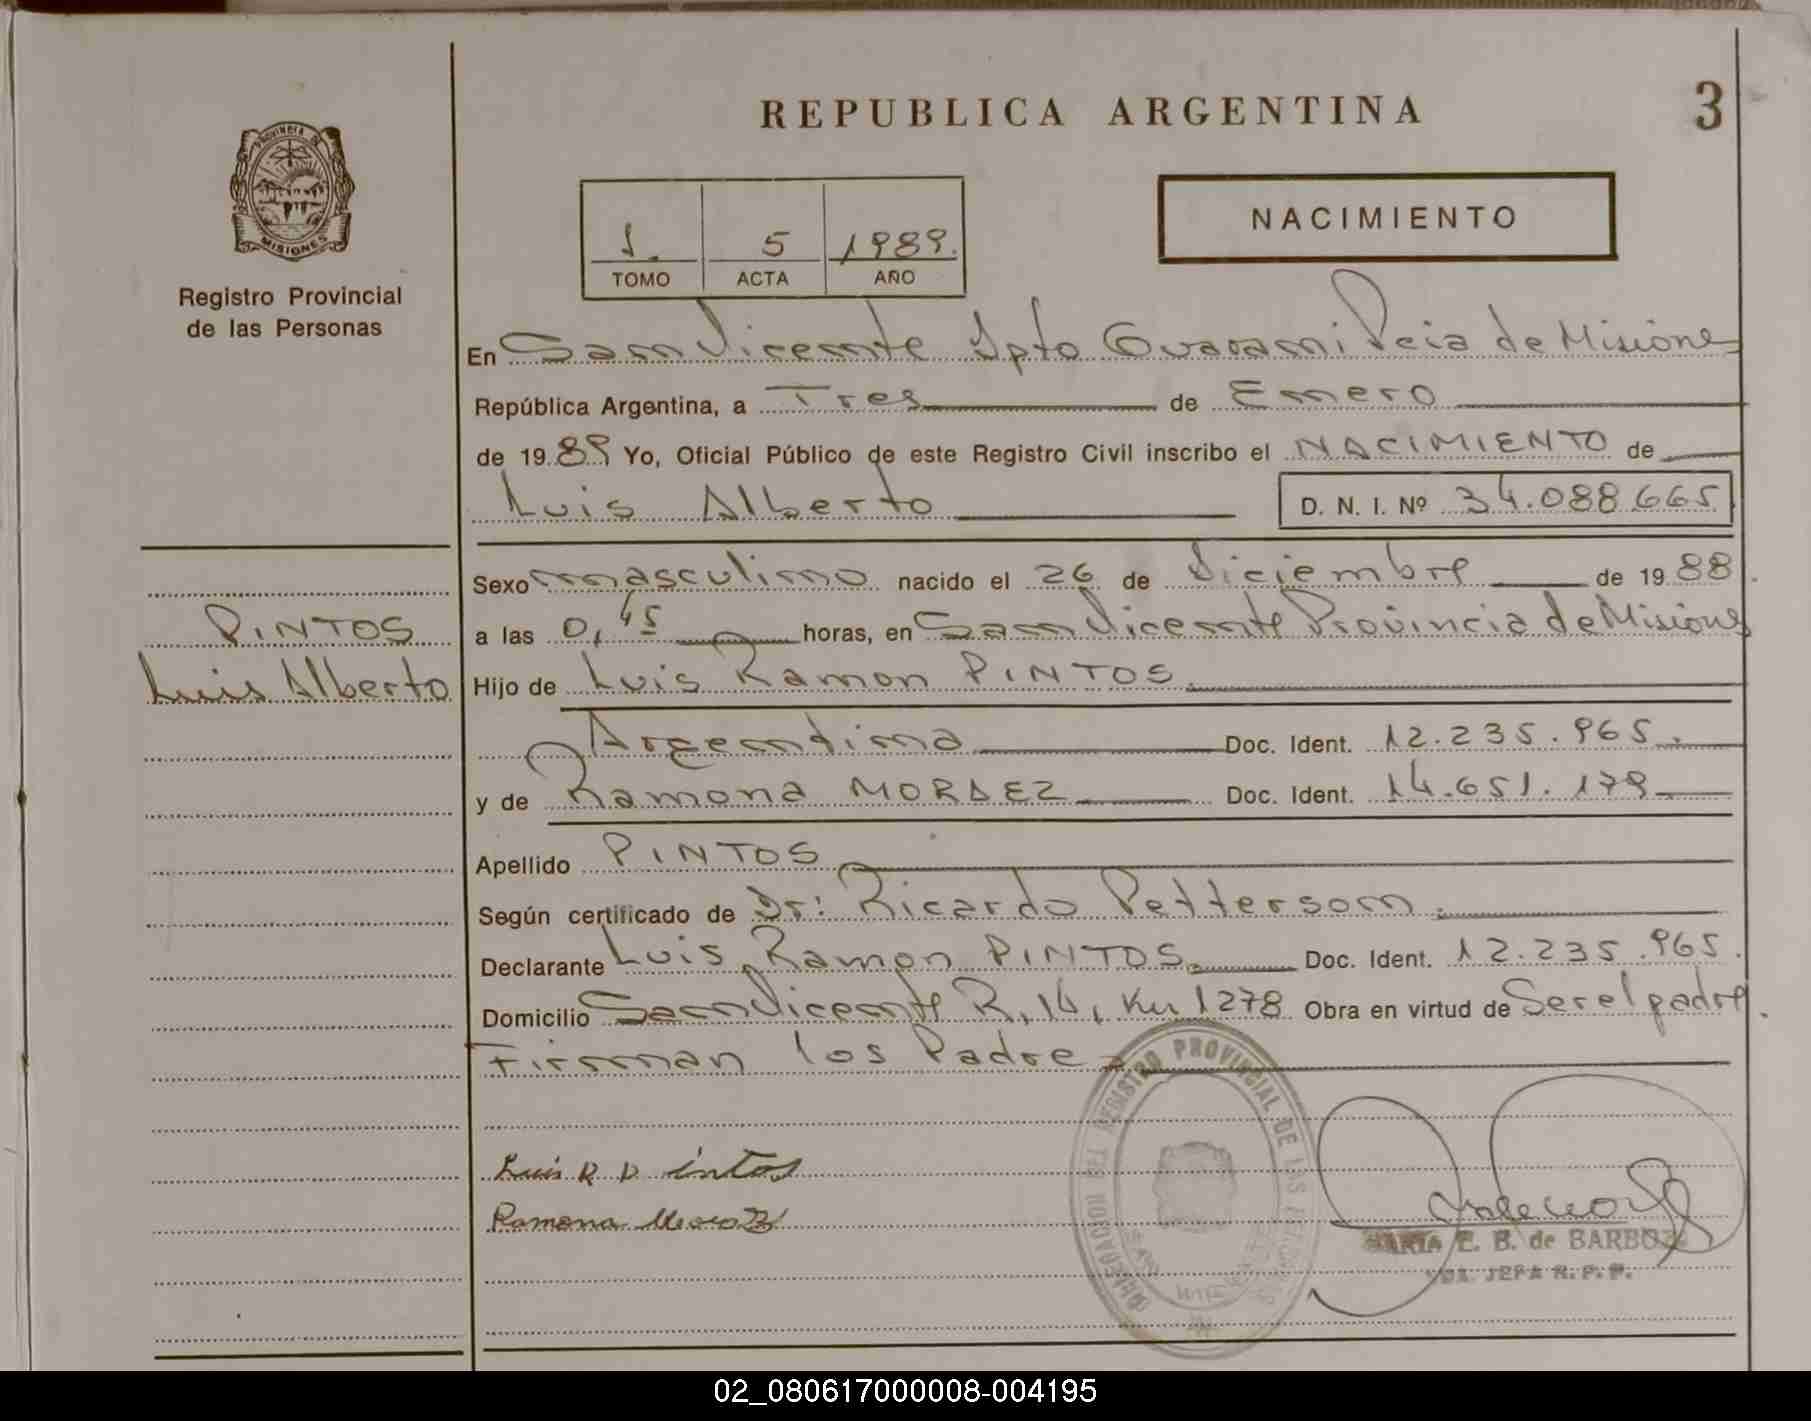 REPUBLICA ARGENTINA
3
PROVINCIA DE
MISIONES
Registro Provincial
de las Personas
1. 5 1989.
TOMO ACTA AÑO
NACIMIENTO
En San Vicente Dpto Guarani Pcia de Misiones
República Argentina, a Tres de Enero
de 1989 Yo, Oficial Público de este Registro Civil inscribo el NACIMIENTO de
Luis Alberto D. N. I. Nº 34.088.665
Sexo masculino nacido el 26 de Diciembre de 1988
PINTOS
Luis Alberto
a las 0,45 horas, en San Vicente Provincia de Misiones
Hijo de Luis Ramon PINTOS
Argentina Doc. Ident. 12.235.965.
y de Ramona Doc. Ident. 14.651.179
Apellido PINTOS
Según certificado de Dr: Ricardo Petterson.
Declarante Luis Ramon PINTOS. Doc. Ident. 12.235.965.
Domicilio San Vicente R, 14, Km 1278 Obra en virtud de Ser el padre.
Firman los Padre
REGISTRO PROVINCIAL DE LAS
Luis R P intos
Ramona
MARIA E. B. de BARBOZA
JEFA R. P. P.
02_080617000008-004195